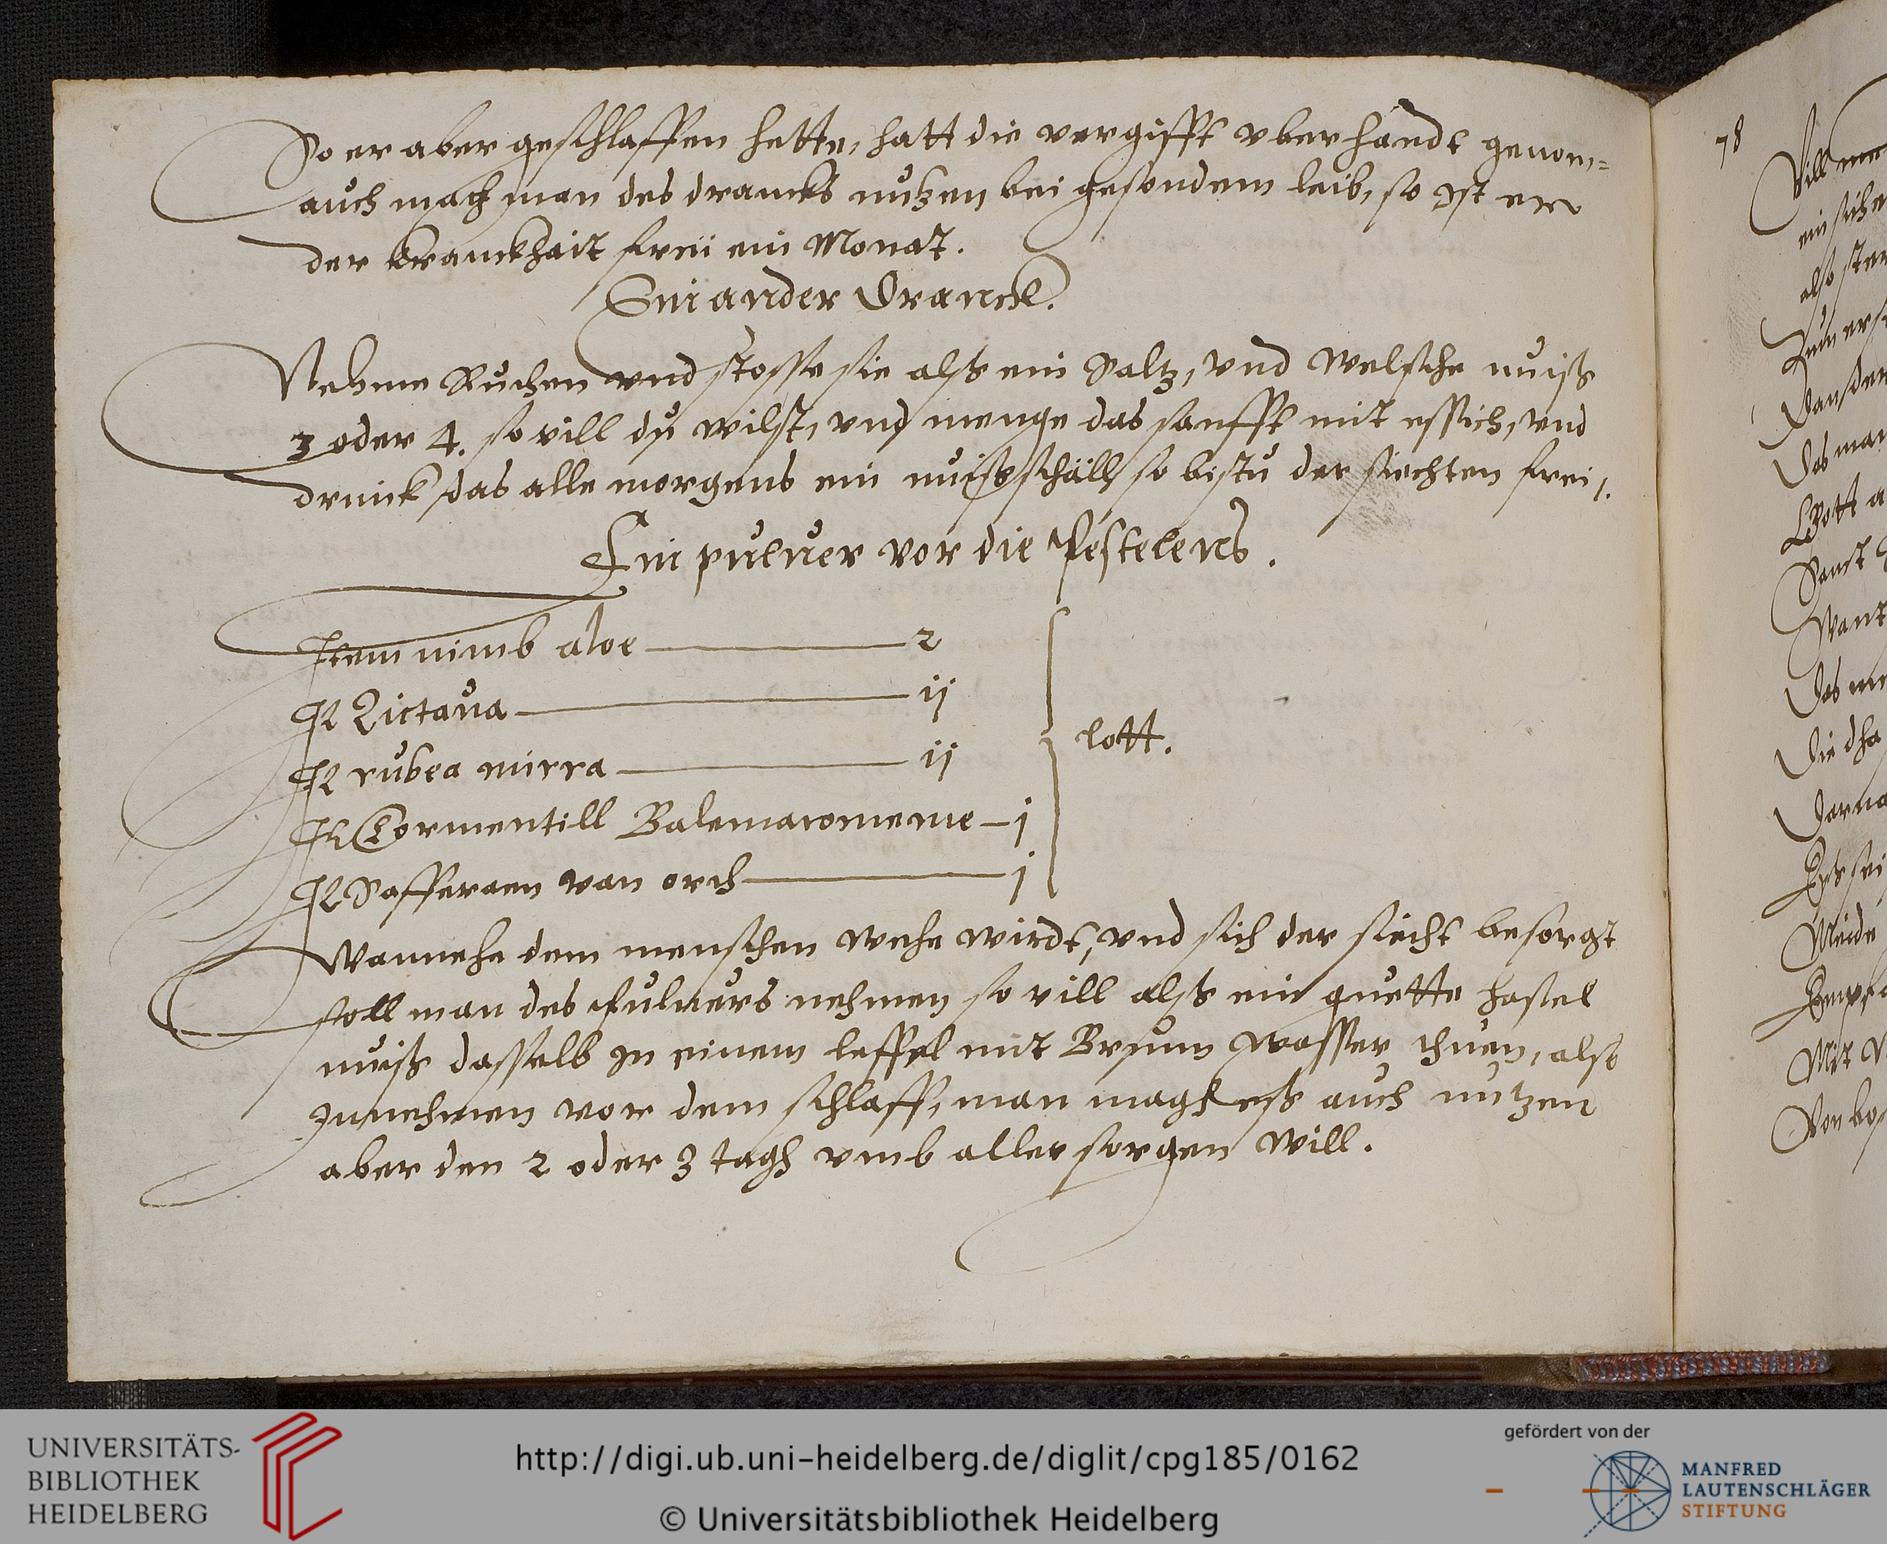 So er aber geschlaffen hette, hatt die vergifft vberhandt genom=
auch mach man des drancks nutzen bei gesondem leib, so ist er
der kranckhait freii ein Monat.
Ein ander Dranck.
Nehme Ruchen vnd stosse sie alß ein Saltz, vnd welsche nuiß
3 oder 4. so vill du wilst, vnd menge das sanfft mit essich, vnd
drinck das alle morgens ein nuißschall so bistu der siechten frei.
Ein puluer vor die Pestelens.
Item nimb aloe 2
It Zictaua ij
It rubea mirra ij
It Tormentill j
It Safferaen van orch j
lott.
Wannehe dem menschen wehe wirdt, vnd sich der siecht besorgt
soll man des Puluers nehmen so vill alß ein guette hasel
nuiß dasselb in einem leffel mit wasser thuen, also
innehmen vor dem schlaff, man magh eß auch nutzen
aber den 2 oder 3 tagh vmb aller sorgen will.
78
Vill
also
Zum
Das man
Gott
Want
Die
Mit
UNIVERSITÄTS-
BIBLIOTHEK
HEIDELBERG
http://digi.ub.uni-heidelberg.de/diglit/cpg185/0162
© Universitätsbibliothek Heidelberg
gefördert von der
MANFRED
LAUTENSCHLÄGER
STIFTUNG